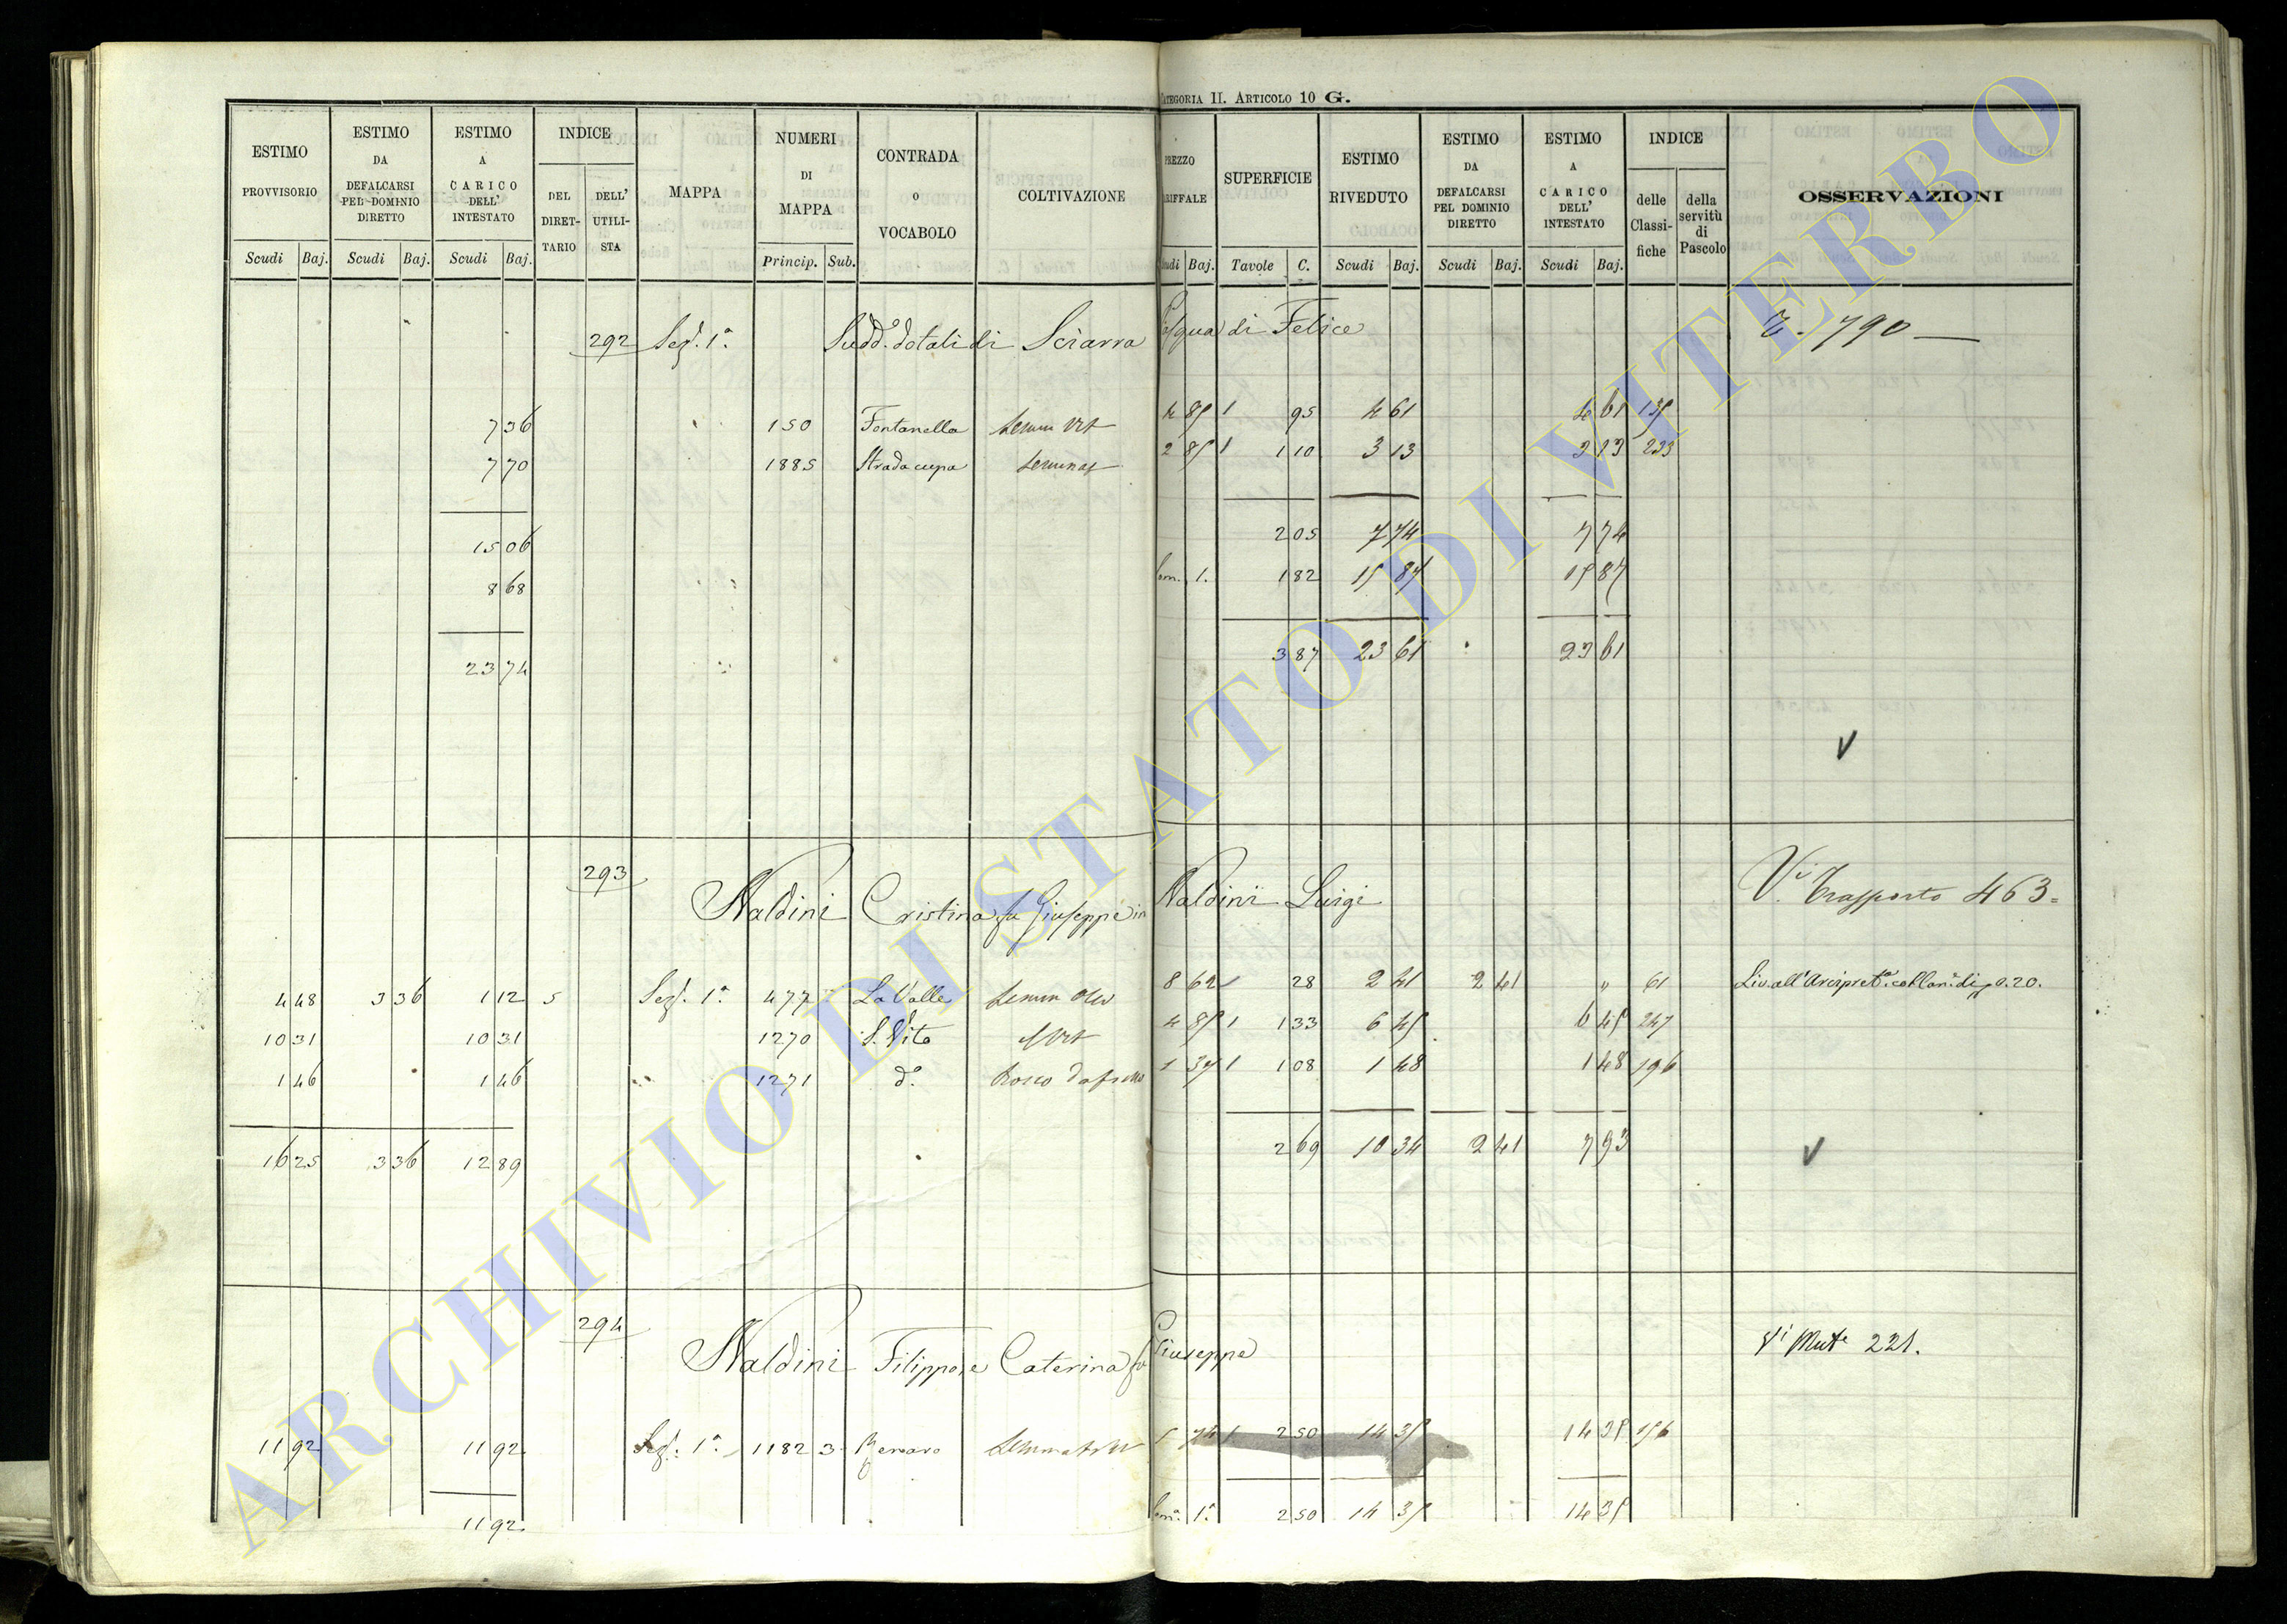 CATEGORIA II. ARTICOLO 10 G.
ESTIMO PROVVISORIO
ESTIMO DA DEFALCARSI PEL DOMINIO DIRETTO
ESTIMO A CARICO DELL' INTESTATO
INDICE
DEL DIRETTARIO
DELL' UTILISTA
MAPPA
NUMERI DI MAPPA
CONTRADA o VOCABOLO
COLTIVAZIONE
PREZZO
SUPERFICIE
ESTIMO RIVEDUTO
ESTIMO DA DEFALCARSI PEL DOMINIO DIRETTO
ESTIMO A CARICO DELL' INTESTATO
INDICE
delle Classifiche
della servitù di Pascolo
OSSERVAZIONI
Scudi Baj. Scudi Baj. Scudi Baj. Princip. Sub. Baj. Tavole C. Scudi Baj. Scudi Baj. Scudi Baj.
292 Sez. 1a Sudd.o dotali di Sciarra Pasqua di Felice 790
7 36 150 Fontanella 4 85 1 95 4 61 4 61 135
7 70 1885 Strada cupa 2 85 1 1 10 3 13 3 13 233
2 05 7 74 7 74
15 06
8 68 1. 1 82 15 87 15 87
23 74 3 87 23 61 23 61
293 Naldini Cristina fu Giuseppe in Naldini Luigi Vi Trasporto 463
4 48 3 36 1 12 5 Sez. 1a 477 La Valle 8 62 1 28 2 41 2 41 " 61 Liv. all' Arcipret.a
10 31 10 31 1270 S. Vito 4 85 1 1 33 6 45 6 45 247
1 46 1 46 1271 do. Bosco 1 37 1 1 08 1 48 1 48 196
16 25 3 36 12 89 2 69 10 34 2 41 7 93
294 Naldini Filippo, e Caterina fu Giuseppe Vi Mute 221.
11 92 11 92 Sez. 1a 1182 3 5 74 1 2 50 14 35 14 35 156
11 92 1a 2 50 14 35 14 35
ARCHIVIO DI STATO DI VITERBO